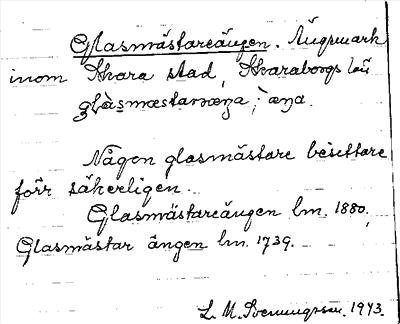 Glasmästareängen. Ängsmark
inom Skara stad, Skaraborgs län
glàsmæstaræŋa; æŋa.
Någon glasmästare besittare
förr säkerligen.
Glasmästareängen lm. 1880,
Glasmästar ängen lm. 1739.
L. M. Svenungsson. 1943.